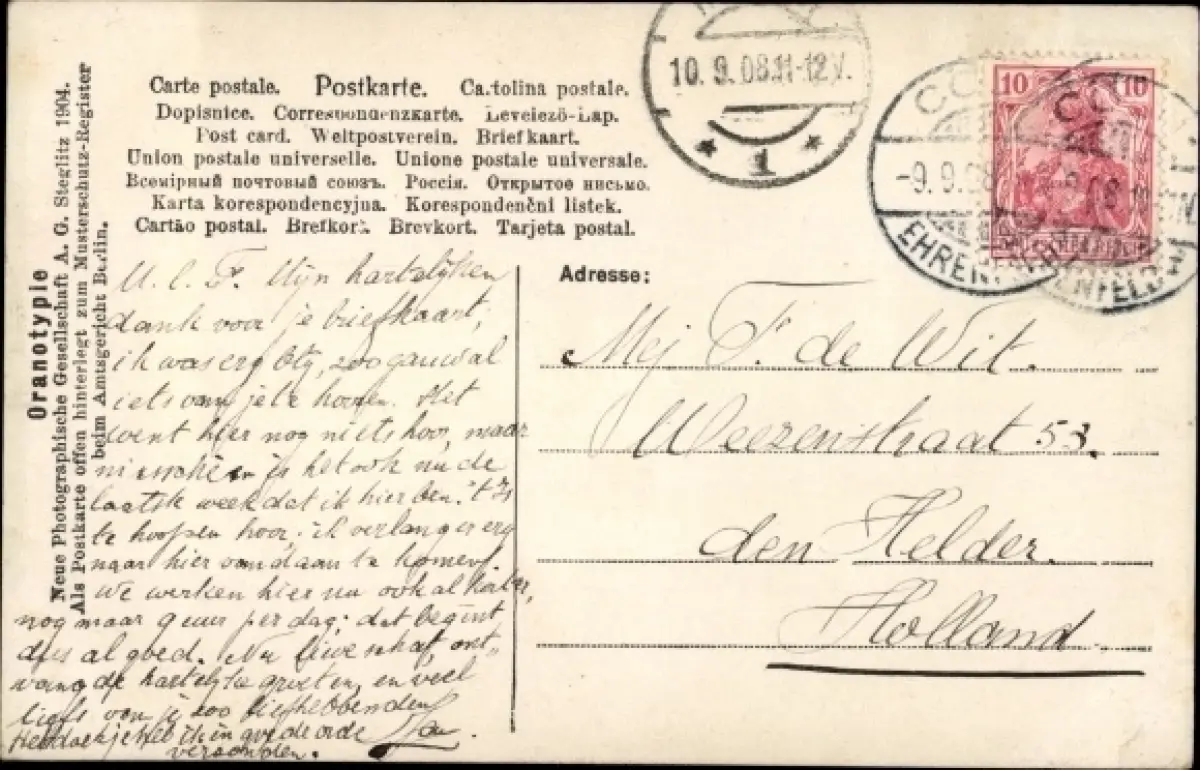 Oranotypie
Neue Photographische Gesellschaft A. G. Steglitz 1904.
Als Postkarte offen hinterlegt zum Musterschutz-Register
beim Amtsgericht Berlin.
Carte postale. Postkarte. Cartolina postale.
Dopisnice. Correspondenzkarte. Levelező-Lap.
Post card. Weltpostverein. Briefkaart.
Union postale universelle. Unione postale universale.
Всемірный почтовый союзъ. Россія. Открытое письмо.
Karta korespondencyjna. Korespondenční listek.
Cartão postal. Brefkort. Brevkort. Tarjeta postal.
10. 9. 08.11-12V.
* 1 *
10 10
-9. 9. 08
EHRENFELD
M. l. F. Mijn hartelijken
dank voor je briefkaart,
ik was erg blij, zoo gauw al
iets van je te hooren. Het
went hier nog niets hoor, maar
misschien is het ook nu de
laatste week dat ik hier ben. 't Is
te hoopen hoor, ik verlang er erg
naar hier vandaan te komen.
We werken hier nu ook al
nog maar 9 uur per dag; dat begint
dus al goed. Nu lieve schat, ont-
vang de hartelijke groeten, en veel
liefs van je zoo liefhebbenden
ik in goede orde
verzonden.
Adresse:
Mej F. de Wit.
Weezenstraat 53.
den Helder.
Holland